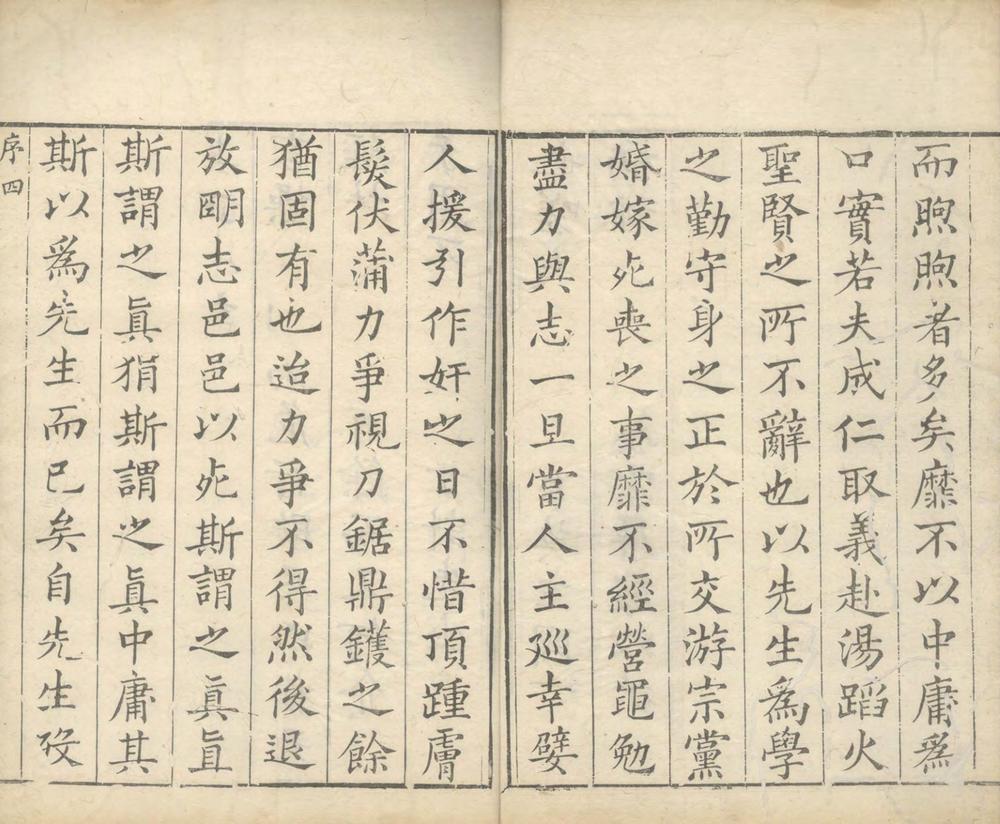 而喣喣者多矣靡不以中庸爲
口實若夫成仁取義赴湯蹈火
聖賢之所不辭也以先生爲學
之勤守身之正於所交游宗黨
婚嫁死喪之事靡不經營黽勉
盡力與志一旦當人主巡幸嬖
人援引作奸之日不惜頂踵膚
髮伏蒲力爭視刀鋸鼎鑊之餘
猶固有也迨力爭不得然後退
放明志邑邑以死斯謂之眞直
斯謂之眞狷斯謂之眞中庸其
斯以爲先生而已矣自先生歿
序四